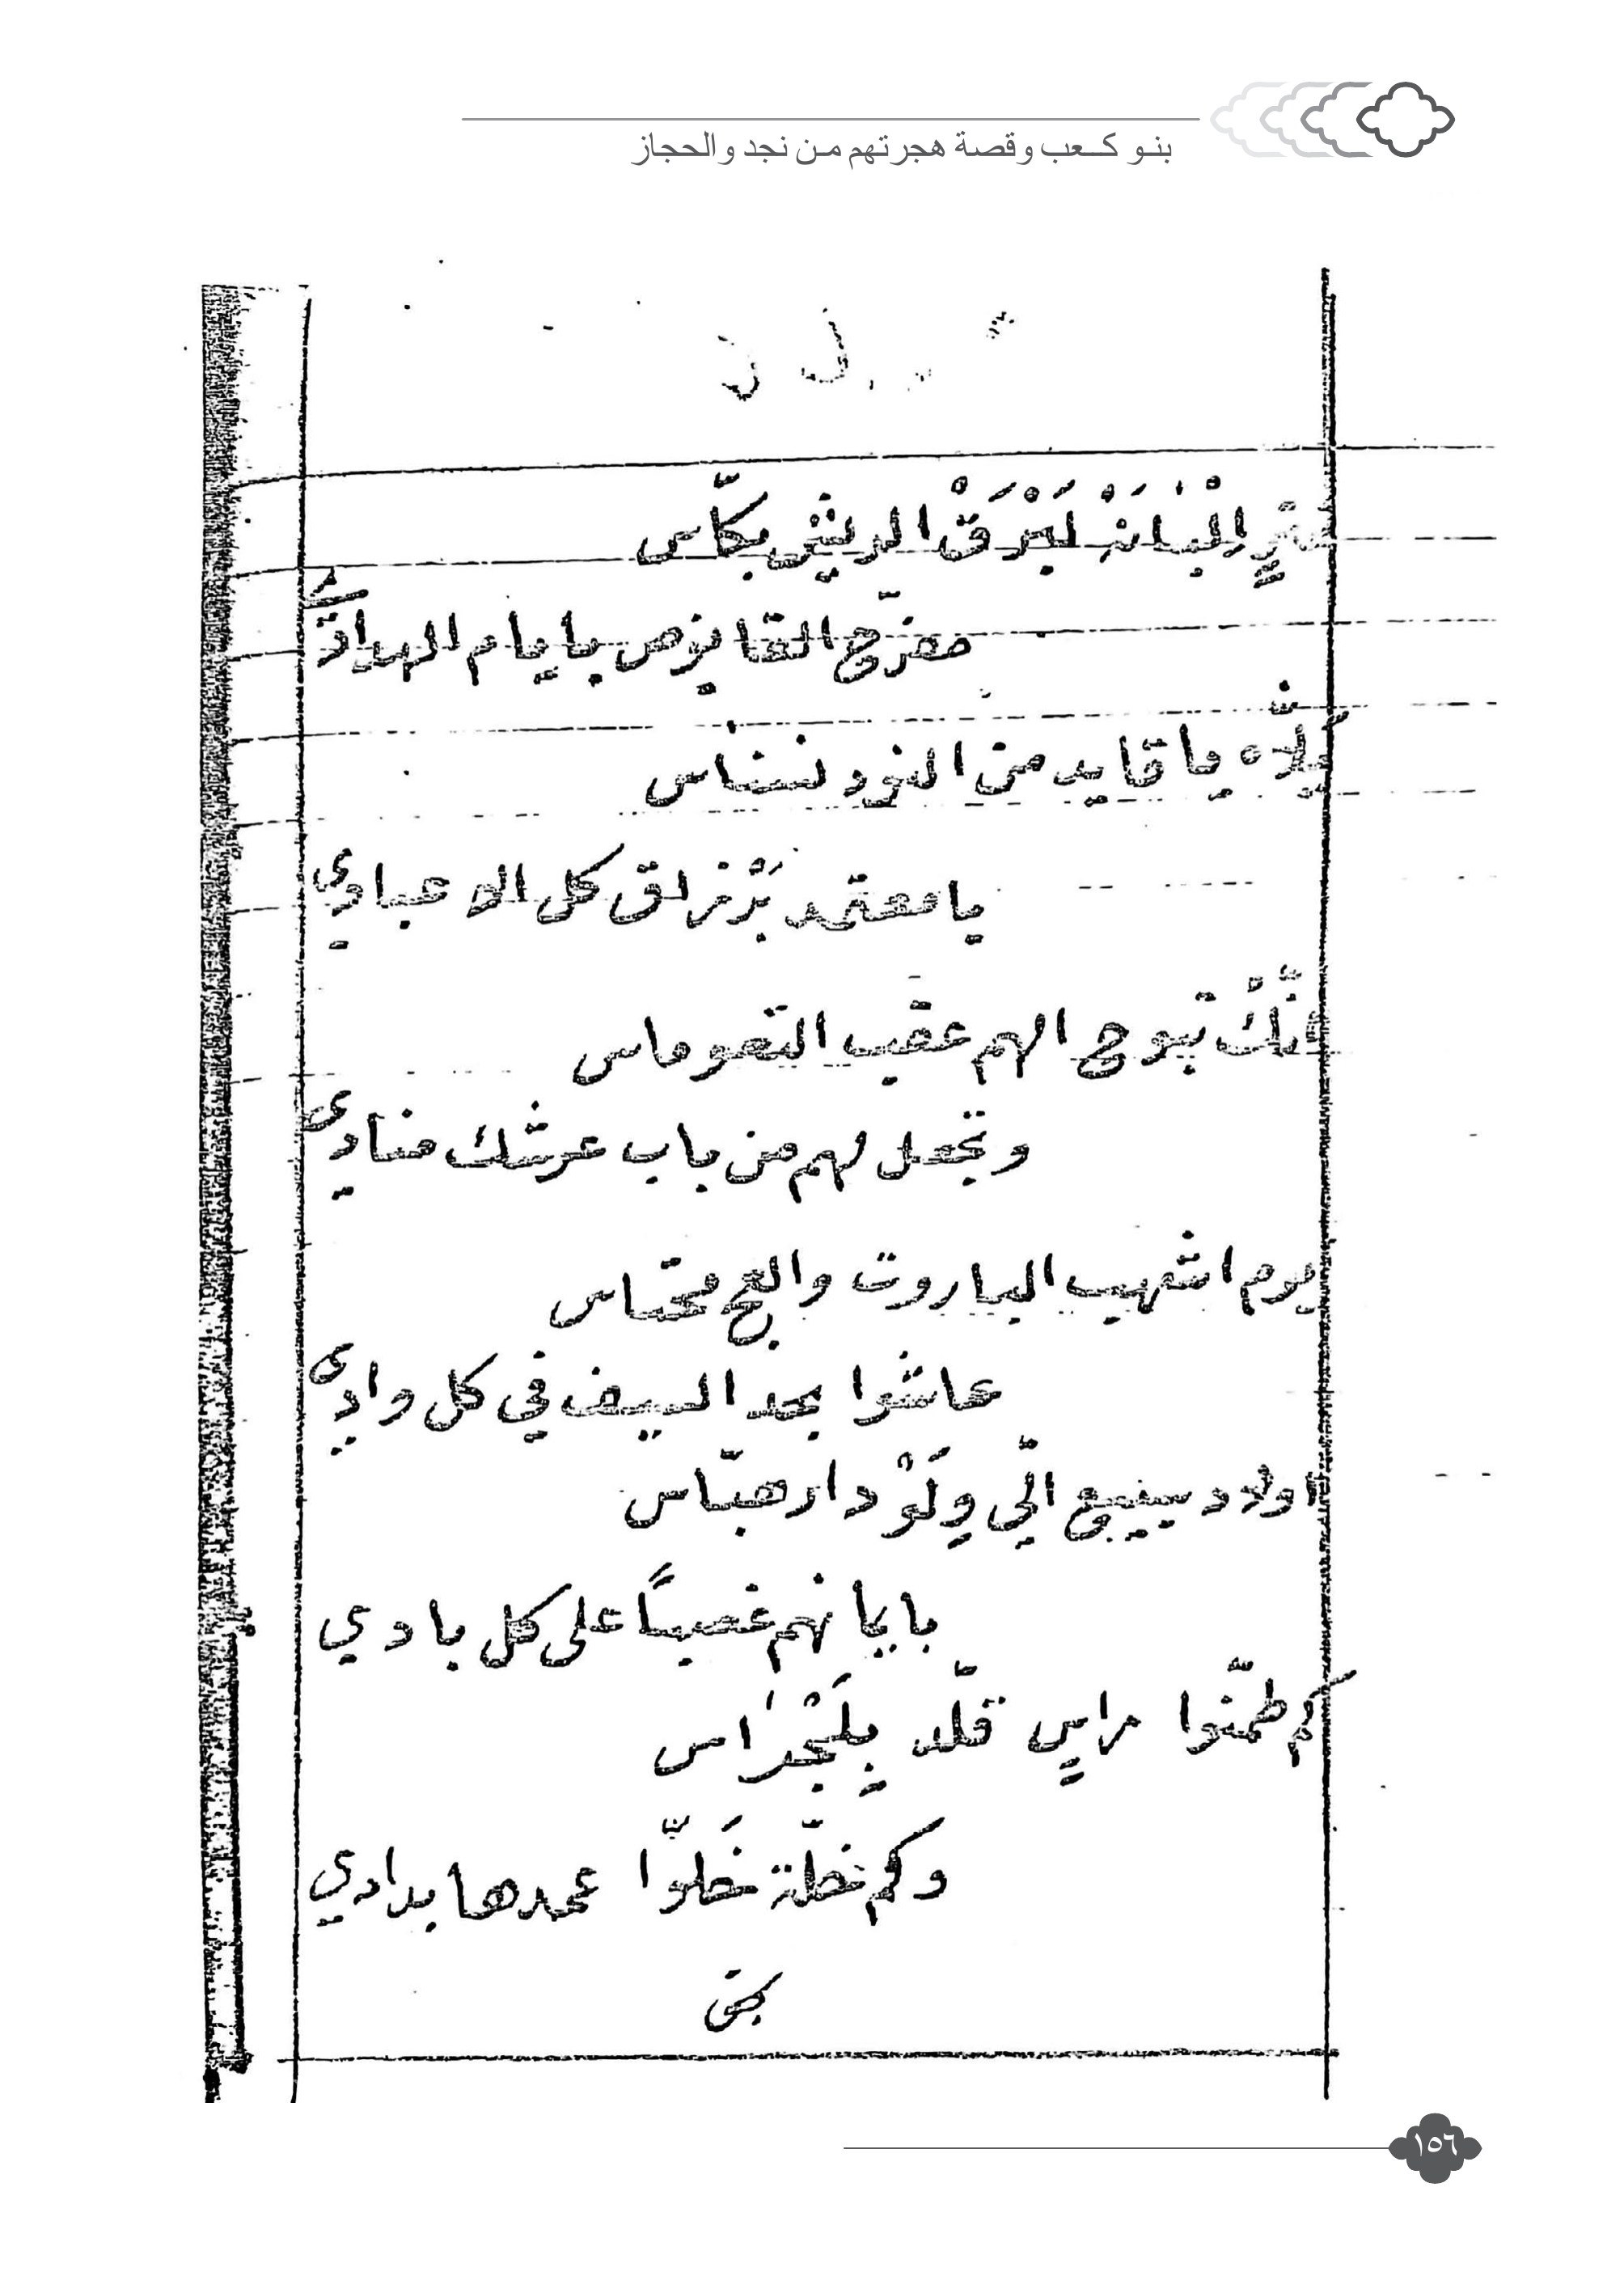 بنو كعب وقصة هجرتهم من نجد والحجاز
الْبَنَانَهْ لَبْرَقْ الريش بكّاس
مفرّح القانوص بايام الهدادي
يلّاه يا قايد من النود نسناس
يا معتمد بَرْزاق كل الاعبادي
انّكْ تبوح الهم عقب التعوماس
وتجعل لهم من باب عرشك منادي
يوم اشهيب الباروت والعج محتاس
عاشوا بحد السيف في كل وادي
اولاد سبيع الّي ولَوْ دار هبّاس
بايمانهم غصباً على كل بادي
كم طمّنوا راسٍ قلّد بِلَجْرَاس
وكم خلّة خَلّوا عمدها بدادي
١٥٦